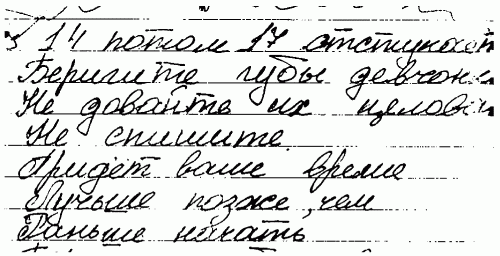 14 потом 17 отстукает
Беригите губы девчонки
Не довайте их целовать
Не спишите
Придет ваше время
Лучше позже, чем
Раньше начать